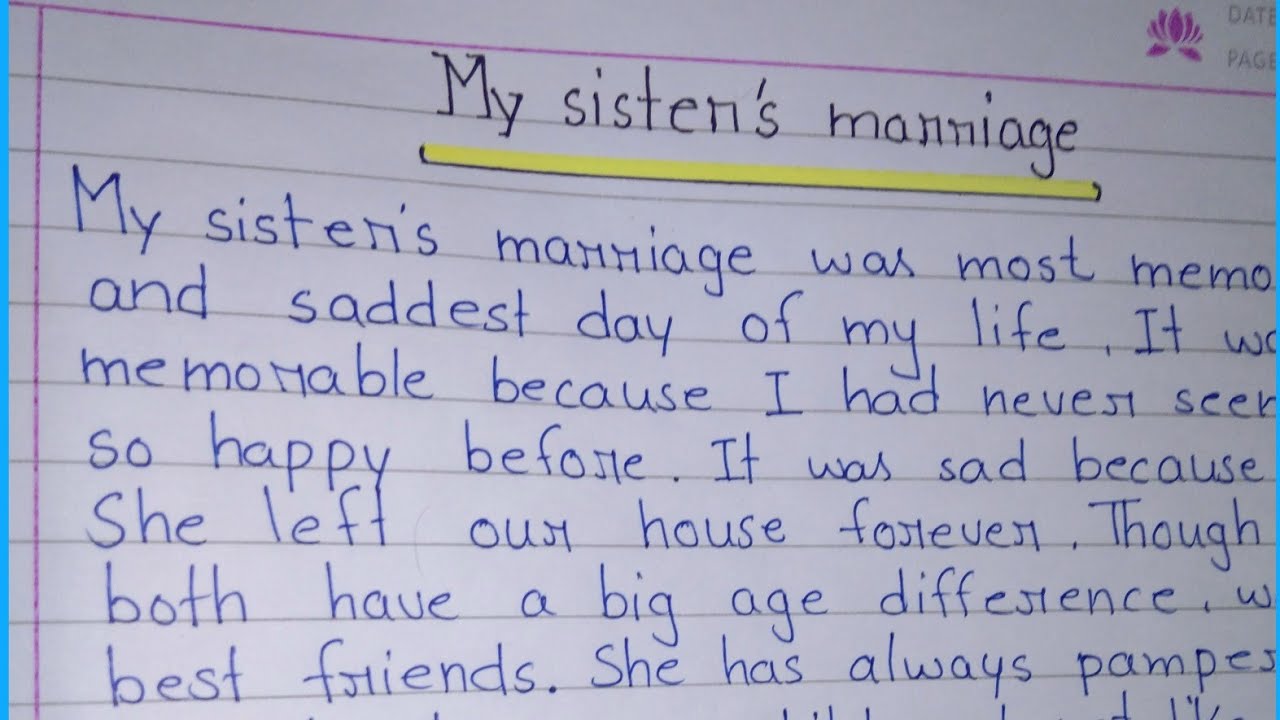 DATE
PAGE
My sister's marriage
My sister's marriage was most memo
and saddest day of my life. It wa
memorable because I had never seen
so happy before. It was sad because
She left our house forever. Though
both have a big age difference, w
best friends. She has always pamper